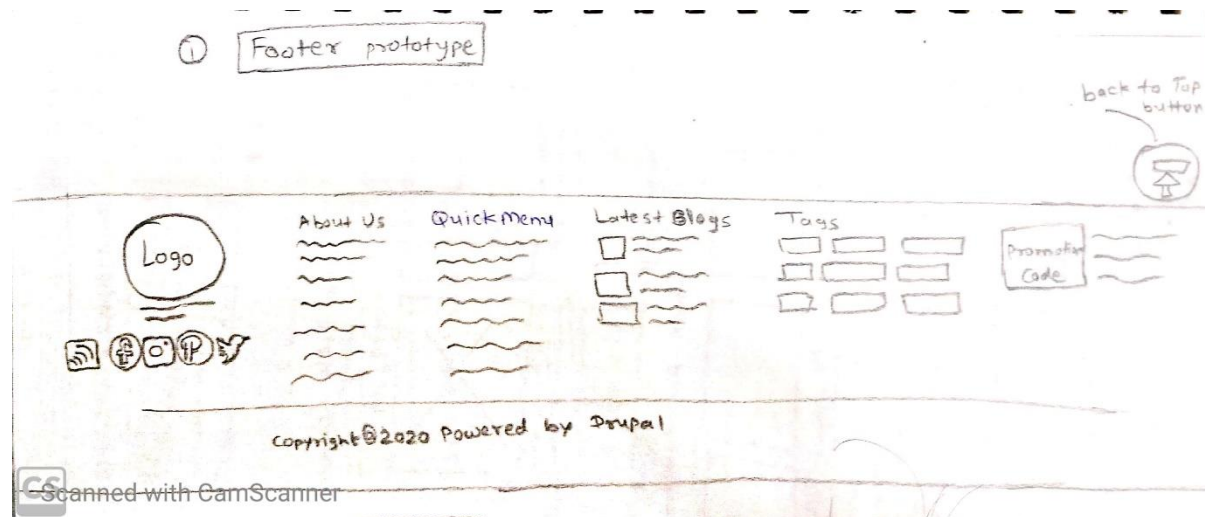 ① Footer prototype
back to Top
button
Logo
About Us
Quick Menu
Latest Blogs
Tags
Promotion
Code
Copyright@2020 Powered by Drupal
CS
Scanned with CamScanner